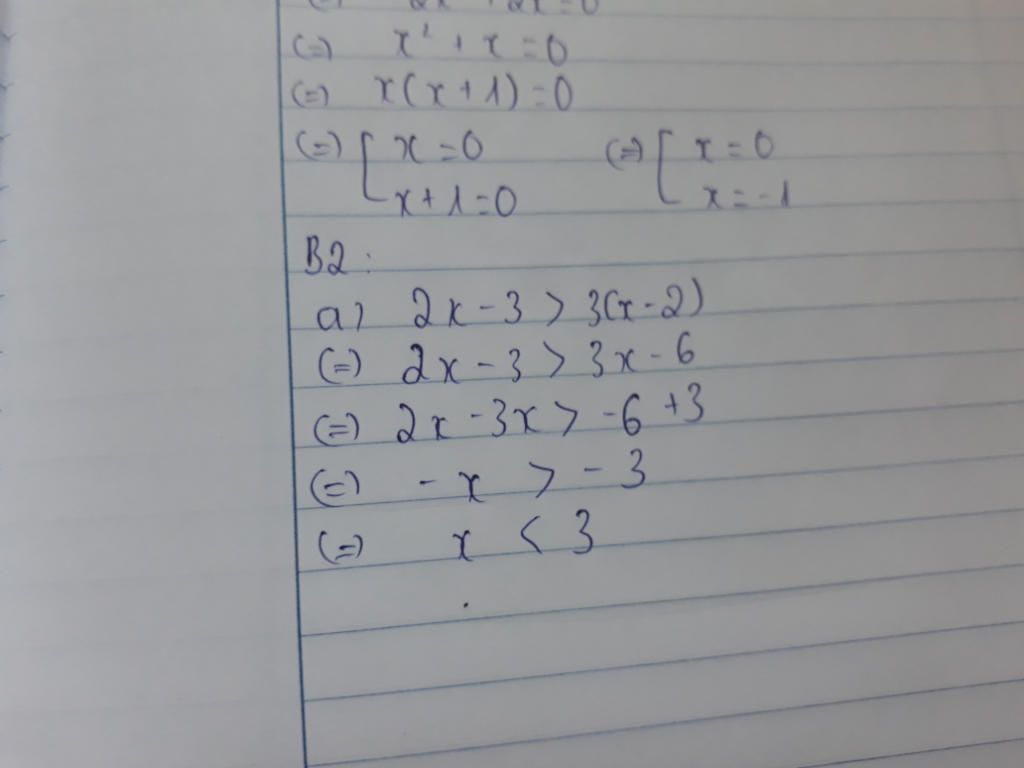 (=) x² + x = 0
(=) x(x + 1) = 0
(=) [ x = 0 (=) [ x = 0
x + 1 = 0 x = -1
B2:
a) 2x - 3 > 3(x - 2)
(=) 2x - 3 > 3x - 6
(=) 2x - 3x > -6 + 3
(=) - x > - 3
(=) x < 3